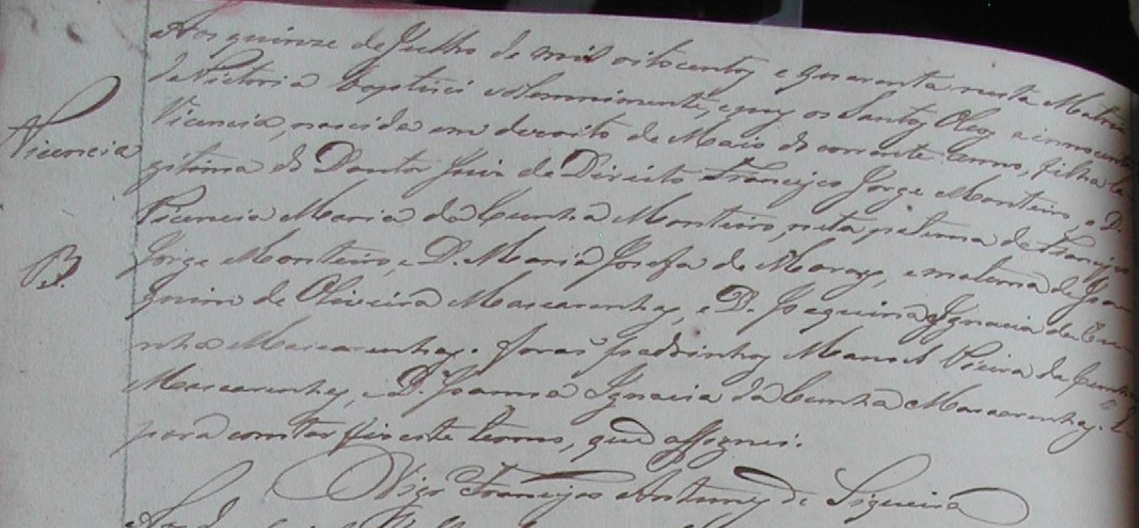 Aos quinze de Julho de mil oitocentos e quarenta nesta Matriz
da Victoria baptizei solemnimente, e puz os Santos Oleos a innocente
Vicencia
Vicencia, nascida em dezoito de Maio do corrente anno, filha le
gitima do Doutor Juiz de Direito Francisco Jorge Monteiro, e D.
Vicencia Maria da Cunha Monteiro, neta paterna de Francisco
B.
Jorge Monteiro, e D. Maria Josefa de Moraes, e materna de Joa
quim de Oliveira Mascarenhas, e D. Joaquina Ignacia da Cu
nha Mascarenhas. Forão padrinhos Manoel Vieira da Cunha
Mascarenhas, e D. Joanna Ignacia da Cunha Mascarenhas. E
para constar fiz este termo, que assignei.
Vigro Francisco Antunes de Siqueira